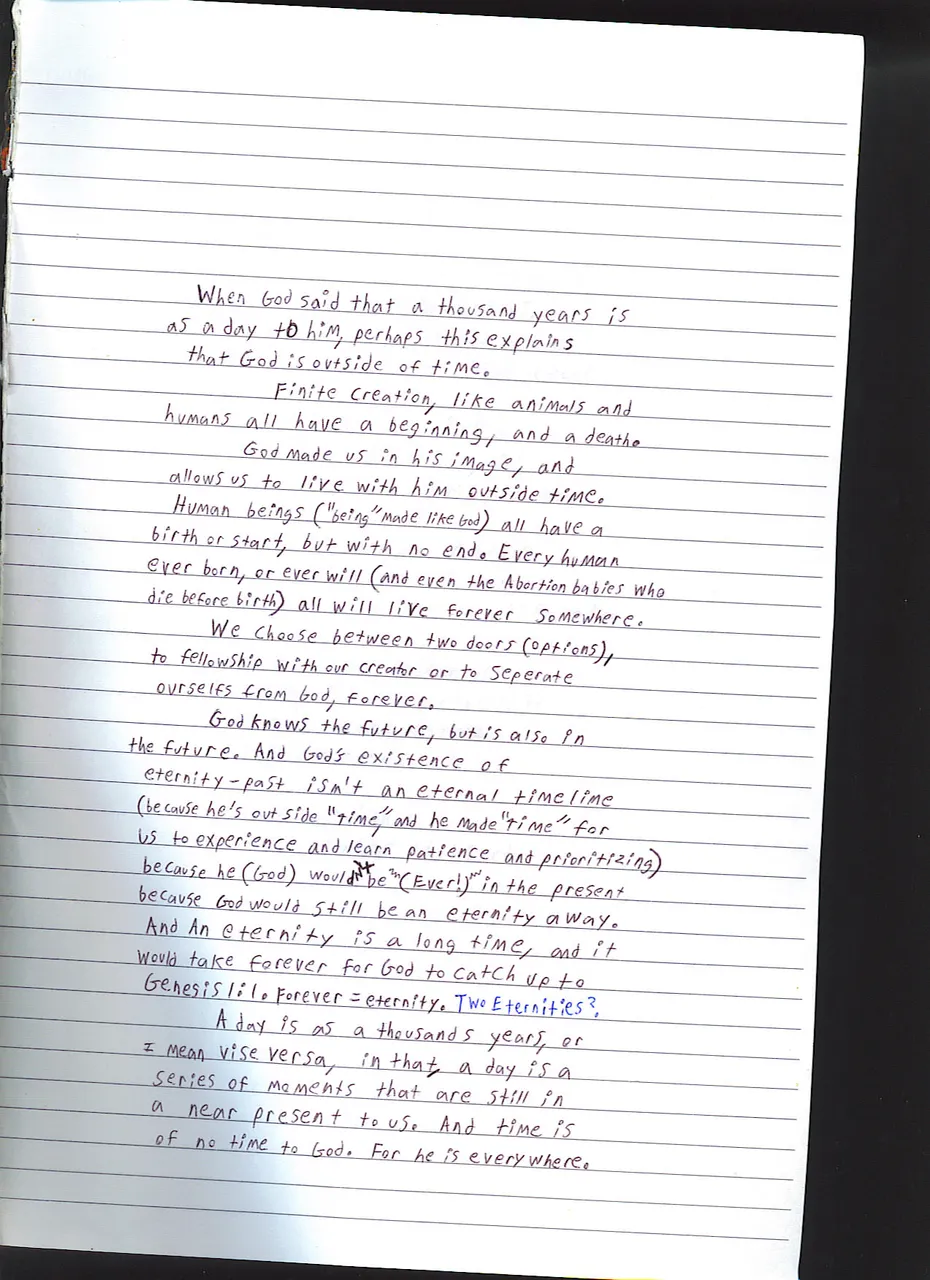 When God said that a thousand years is
as a day to him, perhaps this explains
that God is outside of time.
Finite Creation, like animals and
humans all have a beginning, and a death.
God made us in his image, and
allows us to live with him outside time.
Human beings ("being" made like God) all have a
birth or start, but with no end. Every human
ever born, or ever will (and even the Abortion babies who
die before birth) all will live forever somewhere.
We choose between two doors (options),
to fellowship with our creator or to seperate
ourselfs from God, forever.
God knows the future, but is also in
the future. And God's existence of
eternity-past isn't an eternal timeline
(because he's out side "time," and he made "time" for
us to experience and learn patience and prioritizing)
because he (God) wouldn't be "(Ever!)" in the present
because God would still be an eternity away.
And An eternity is a long time, and it
would take forever for God to catch up to
Genesis 1:1. Forever = eternity. Two Eternities?
A day is as a thousands years, or
I mean vise versa, in that, a day is a
series of moments that are still in
a near present to us. And time is
of no time to God. For he is everywhere.